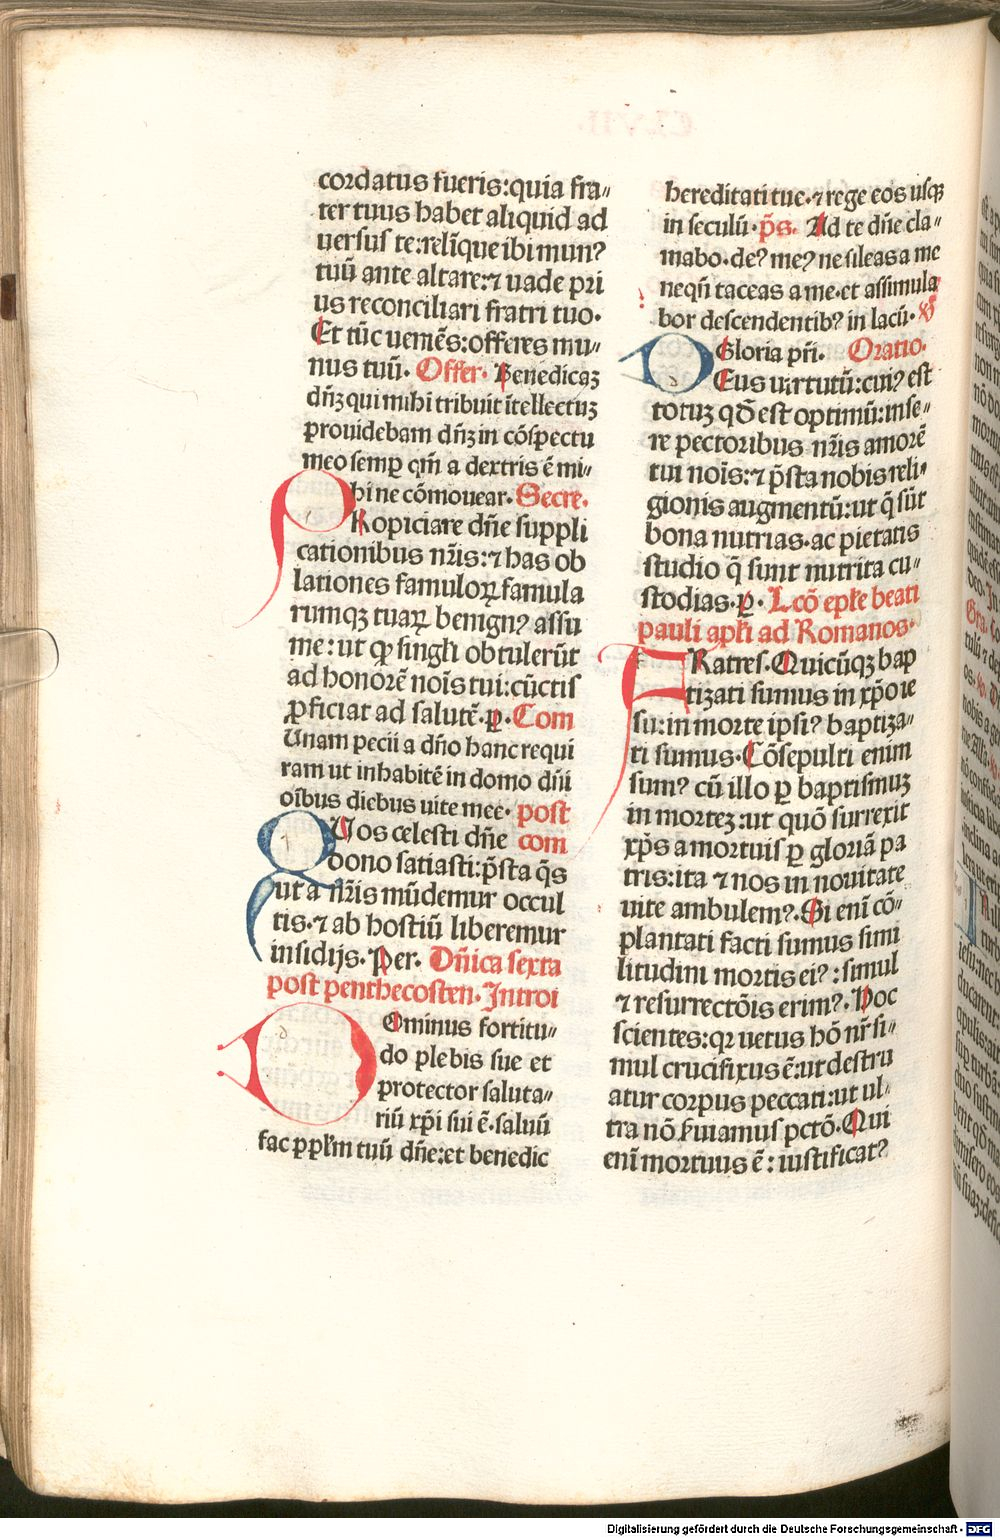 cordatus fueris:quia fra〃
ter tuus habet aliquid ad
uersus te:relīque ibi munꝰ
tuū ante altare:⁊ uade pri
us reconciliari fratri tuo·
Et tūc ueniēs:offeres mu〃
nus tuū· Offer· Benedicaꝫ
dñꝫ qui mihi tribuit ītellectuꝫ
prouidebam dñꝫ in cōspectu
meo semꝑ qm̄ a dextris ē mi〃
hi ne cōmouear· Secre·
PRopiciare dñe suppli
cationibus nr̄is:⁊ has ob
lationes famuloꝝ famula
rumqꝫ tuaꝝ benignꝰ assu
me:ut ꝙ singl̓i obtulerūt
ad honorē nois̄ tui:cūctis
ꝓficiat ad salutē·ꝑ· Com
Unam pecii a dn̄o hanc requi
ram ut inhabitē in domo dn̄i
oībus diebus uite mee· post
QUos celesti dñe com
dono satiasti:p̄sta q̄s
ut a nr̄is mūdemur occul
tis·⁊ ab hostiū liberemur
insidijs· Per· Dn̄ica sexta
post penthecosten· Introi
DOminus fortitu〃
do plebis sue et
protector saluta〃
riū xp̄i sui ē·saluū
fac pꝓpl̓m tuū dñe:et benedic
hereditati tue·⁊ rege eos usqꝫ
in seculū· p̄s· Ad te dñe cla〃
mabo·deꝰ meꝰ ne sileas a me
neqn̄ taceas a me·et assimula
bor descendentibꝰ in lacū· ℣
Gloria pr̄i· Oratio·
DEus uirtutū:cuiꝰ est
totuꝫ qd̄ est optimū:inse〃
re pectoribus nr̄is amorē
tui nois̄:⁊ p̄sta nobis reli〃
gionis augmentū:ut q̄ sūt
bona nutrias·ac pietatis
studio q̄ sunt nutrita cu〃
stodias·ꝑ· Lcō epl̓e beati
pauli apl̓i ad Romanos·
FRatres·Quicūqꝫ bap
tizati sumus in xp̄o ie
su:in morte ipsiꝰ baptiza〃
ti sumus·Cōsepulti enim
sumꝰ cū illo ꝑ baptismuꝫ
in morteꝫ:ut quō surrexit
xp̄s a mortuis ꝑ gloriā pa
tris:ita ⁊ nos in nouitate
uite ambulemꝰ·Si eni̅ cō〃
plantati facti sumus simi
litudini mortis eiꝰ:simul
⁊ resurrectōis erimꝰ·Hoc
scientes:qꝛ uetus hō nr̄ si〃
mul crucifixus ē:ut destru
atur corpus peccati:ut ul〃
tra nō ẜuiamus pctō·Qui
eni̅ mortuus ē: iustificatꝰ